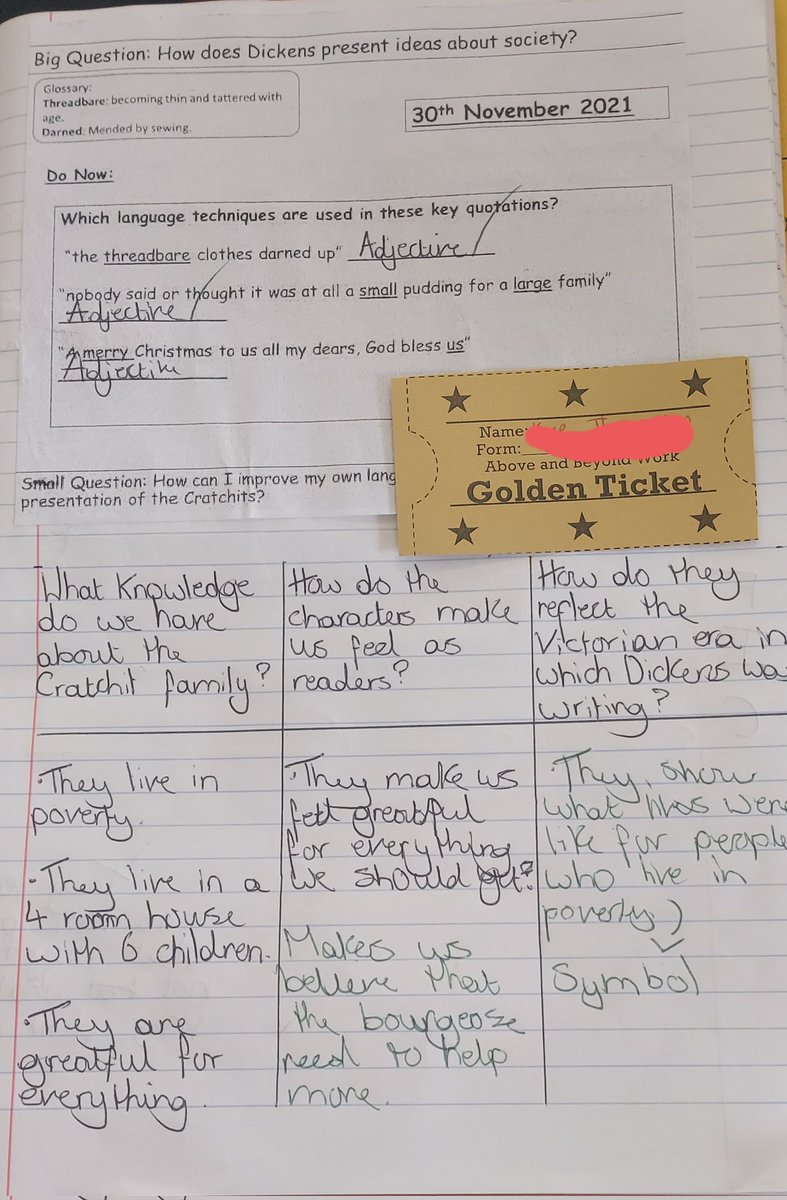 Big Question: How does Dickens present ideas about society?
Glossary:
Threadbare: becoming thin and tattered with
age.
Darned: Mended by sewing.
30th November 2021
Do Now:
Which language techniques are used in these key quotations?
"the threadbare clothes darned up" Adjective
"nobody said or thought it was at all a small pudding for a large family"
Adjective
"A merry Christmas to us all my dears, God bless us"
Adjective
Name:
Form:
Above and Beyond Work
Golden Ticket
Small Question: How can I improve my own lang
presentation of the Cratchits?
What Knowledge
do we have
about the
Cratchit family?
How do the
characters make
us feel as
readers?
How do they
reflect the
Victorian era in
which Dickens wa
writing?
·They live in
poverty.
-They live in a
4 room house
with 6 children.
·They are
greatful for
everything.
·They make us
felt greatful
for everything
we should get?
Makes us
believe that
the bourgeose
need to help
more.
·They show
what lives were
like for people
who live in
poverty)
Symbol